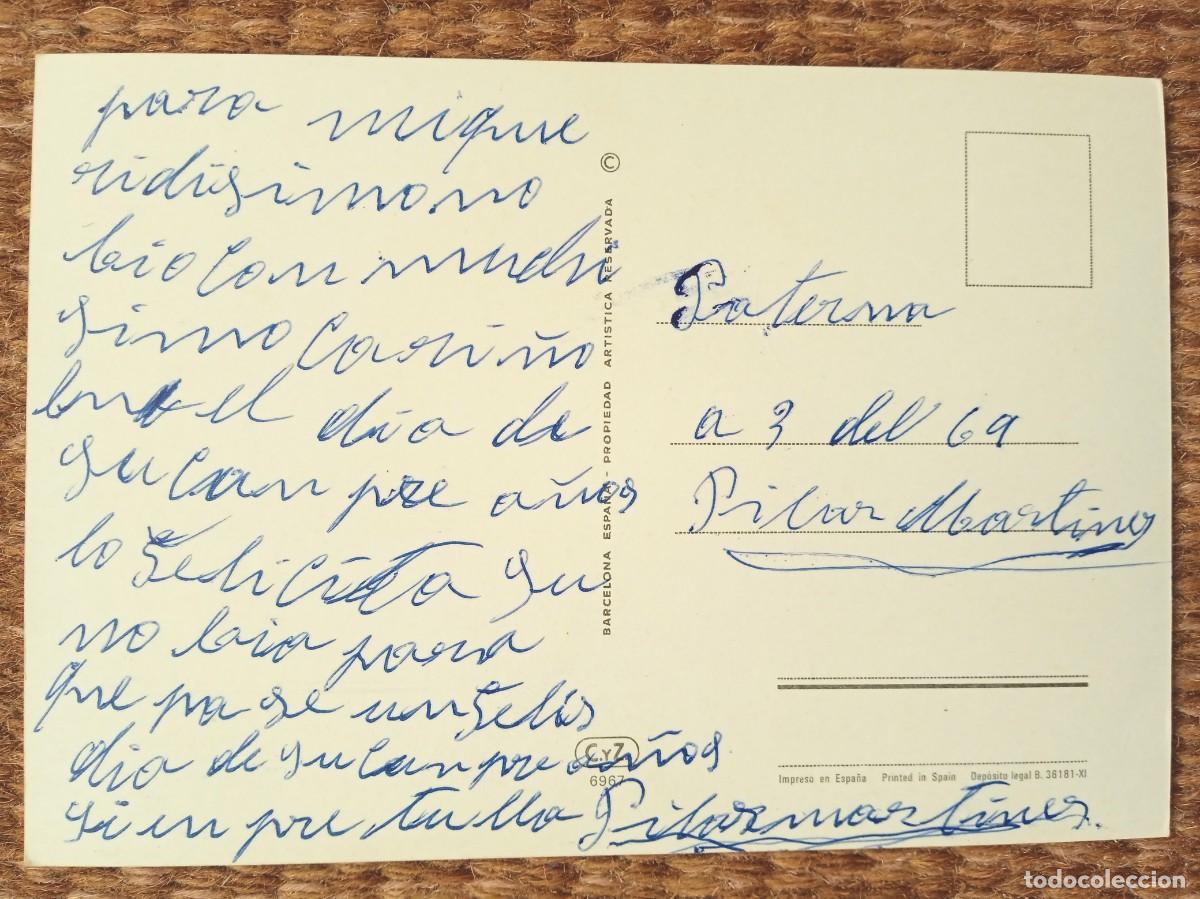 para mique
ridisimo no
bio con muchi
simo cariño
en el dia de
su canpre años
lo felicita su
no bia para
que pase un felis
dia de su canpre años
sienpre tulla Pilar martines.
©
BARCELONA ESPAÑA - PROPIEDAD ARTISTICA RESERVADA
C.YZ
6967
Paterna
a 3 del 69
Pilar Martines
Impreso en España Printed in Spain Depósito legal B. 36181-XI
todocoleccion